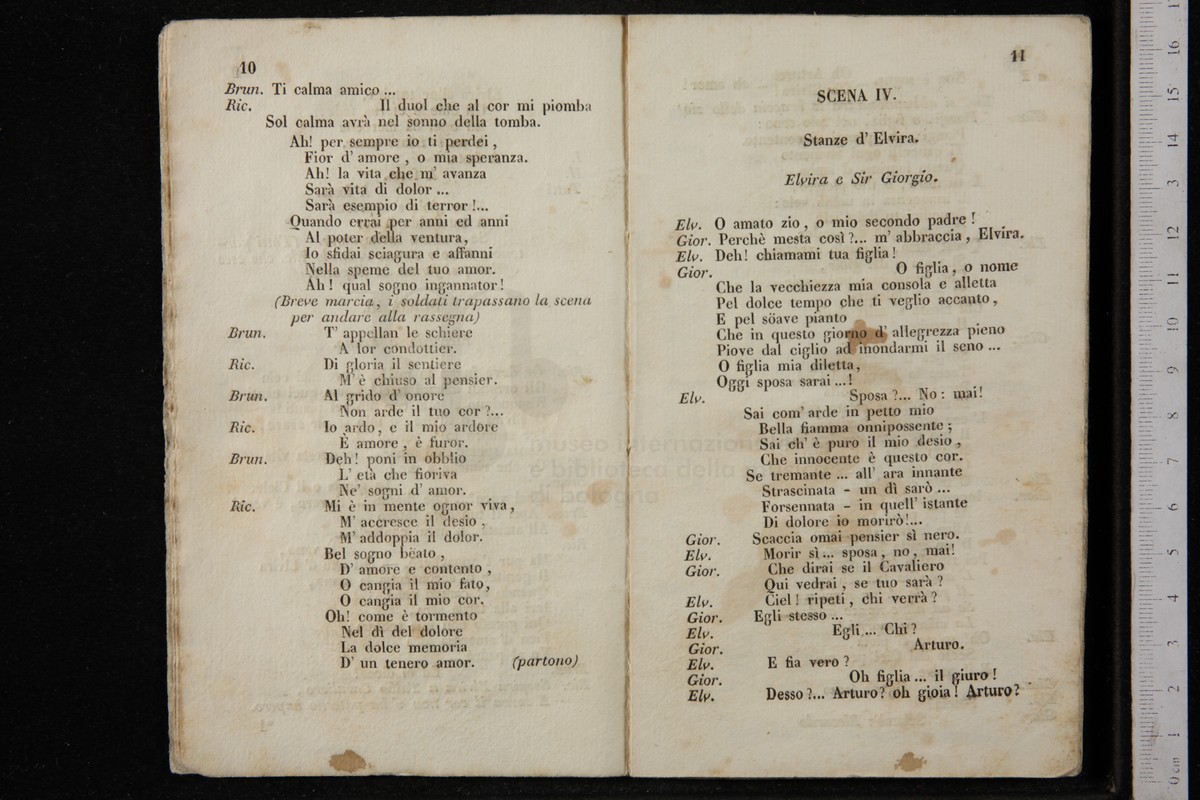 10
Brun. Ti calma amico ...
Ric. Il duol che al cor mi piomba
Sol calma avrà nel sonno della tomba.
Ah! per sempre io ti perdei,
Fior d' amore, o mia speranza.
Ah! la vita che m' avanza
Sarà vita di dolor ...
Sarà esempio di terror!...
Quando errai per anni ed anni
Al poter della ventura,
Io sfidai sciagura e affanni
Nella speme del tuo amor.
Ah! qual sogno ingannator!
(Breve marcia, i soldati trapassano la scena
per andare alla rassegna)
Brun. T' appellan le schiere
A lor condottier.
Ric. Di gloria il sentiere
M' è chiuso al pensier.
Brun. Al grido d' onore
Non arde il tuo cor?...
Ric. Io ardo, e il mio ardore
È amore, è furor.
Brun. Deh! poni in obblio
L' età che fioriva
Ne' sogni d' amor.
Ric. Mi è in mente ognor viva,
M' accresce il desio,
M' addoppia il dolor.
Bel sogno bëato,
D' amore e contento,
O cangia il mio fato,
O cangia il mio cor.
Oh! come è tormento
Nel dì del dolore
La dolce memoria
D' un tenero amor. (partono)
11
SCENA IV.
Stanze d' Elvira.
Elvira e Sir Giorgio.
Elv. O amato zio, o mio secondo padre!
Gior. Perchè mesta così?... m' abbraccia, Elvira.
Elv. Deh! chiamami tua figlia!
Gior. O figlia, o nome
Che la vecchiezza mia consola e alletta
Pel dolce tempo che ti veglio accanto,
E pel söave pianto
Che in questo giorno d' allegrezza pieno
Piove dal ciglio ad inondarmi il seno ...
O figlia mia diletta,
Oggi sposa sarai ...!
Elv. Sposa?... No: mai!
Sai com' arde in petto mio
Bella fiamma onnipossente;
Sai ch' è puro il mio desio,
Che innocente è questo cor.
Se tremante ... all' ara innante
Strascinata - un dì sarò ...
Forsennata - in quell' istante
Di dolore io morirò!...
Gior. Scaccia omai pensier sì nero.
Elv. Morir sì... sposa, no, mai!
Gior. Che dirai se il Cavaliero
Qui vedrai, se tuo sarà?
Elv. Ciel! ripeti, chi verrà?
Gior. Egli stesso ...
Elv. Egli ... Chi?
Gior. Arturo.
Elv. E fia vero?
Gior. Oh figlia ... il giuro!
Elv. Desso?... Arturo? oh gioia! Arturo?
museo internazion
e biblioteca della
di bologna
0 cm 1 2 3 4 5 6 7 8 9 10 11 12 13 14 15 16